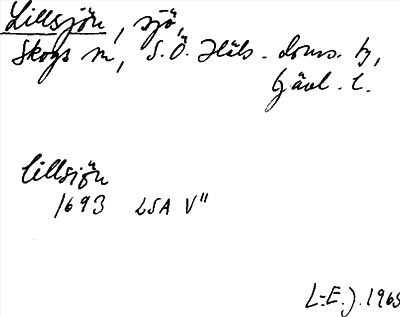 Lillsjön, sjö,
Skogs sn, S.Ö. Häls. doms. tg,
Gävl. l.
Lillsiön
1693 LSA V"
L-E. J. 1965